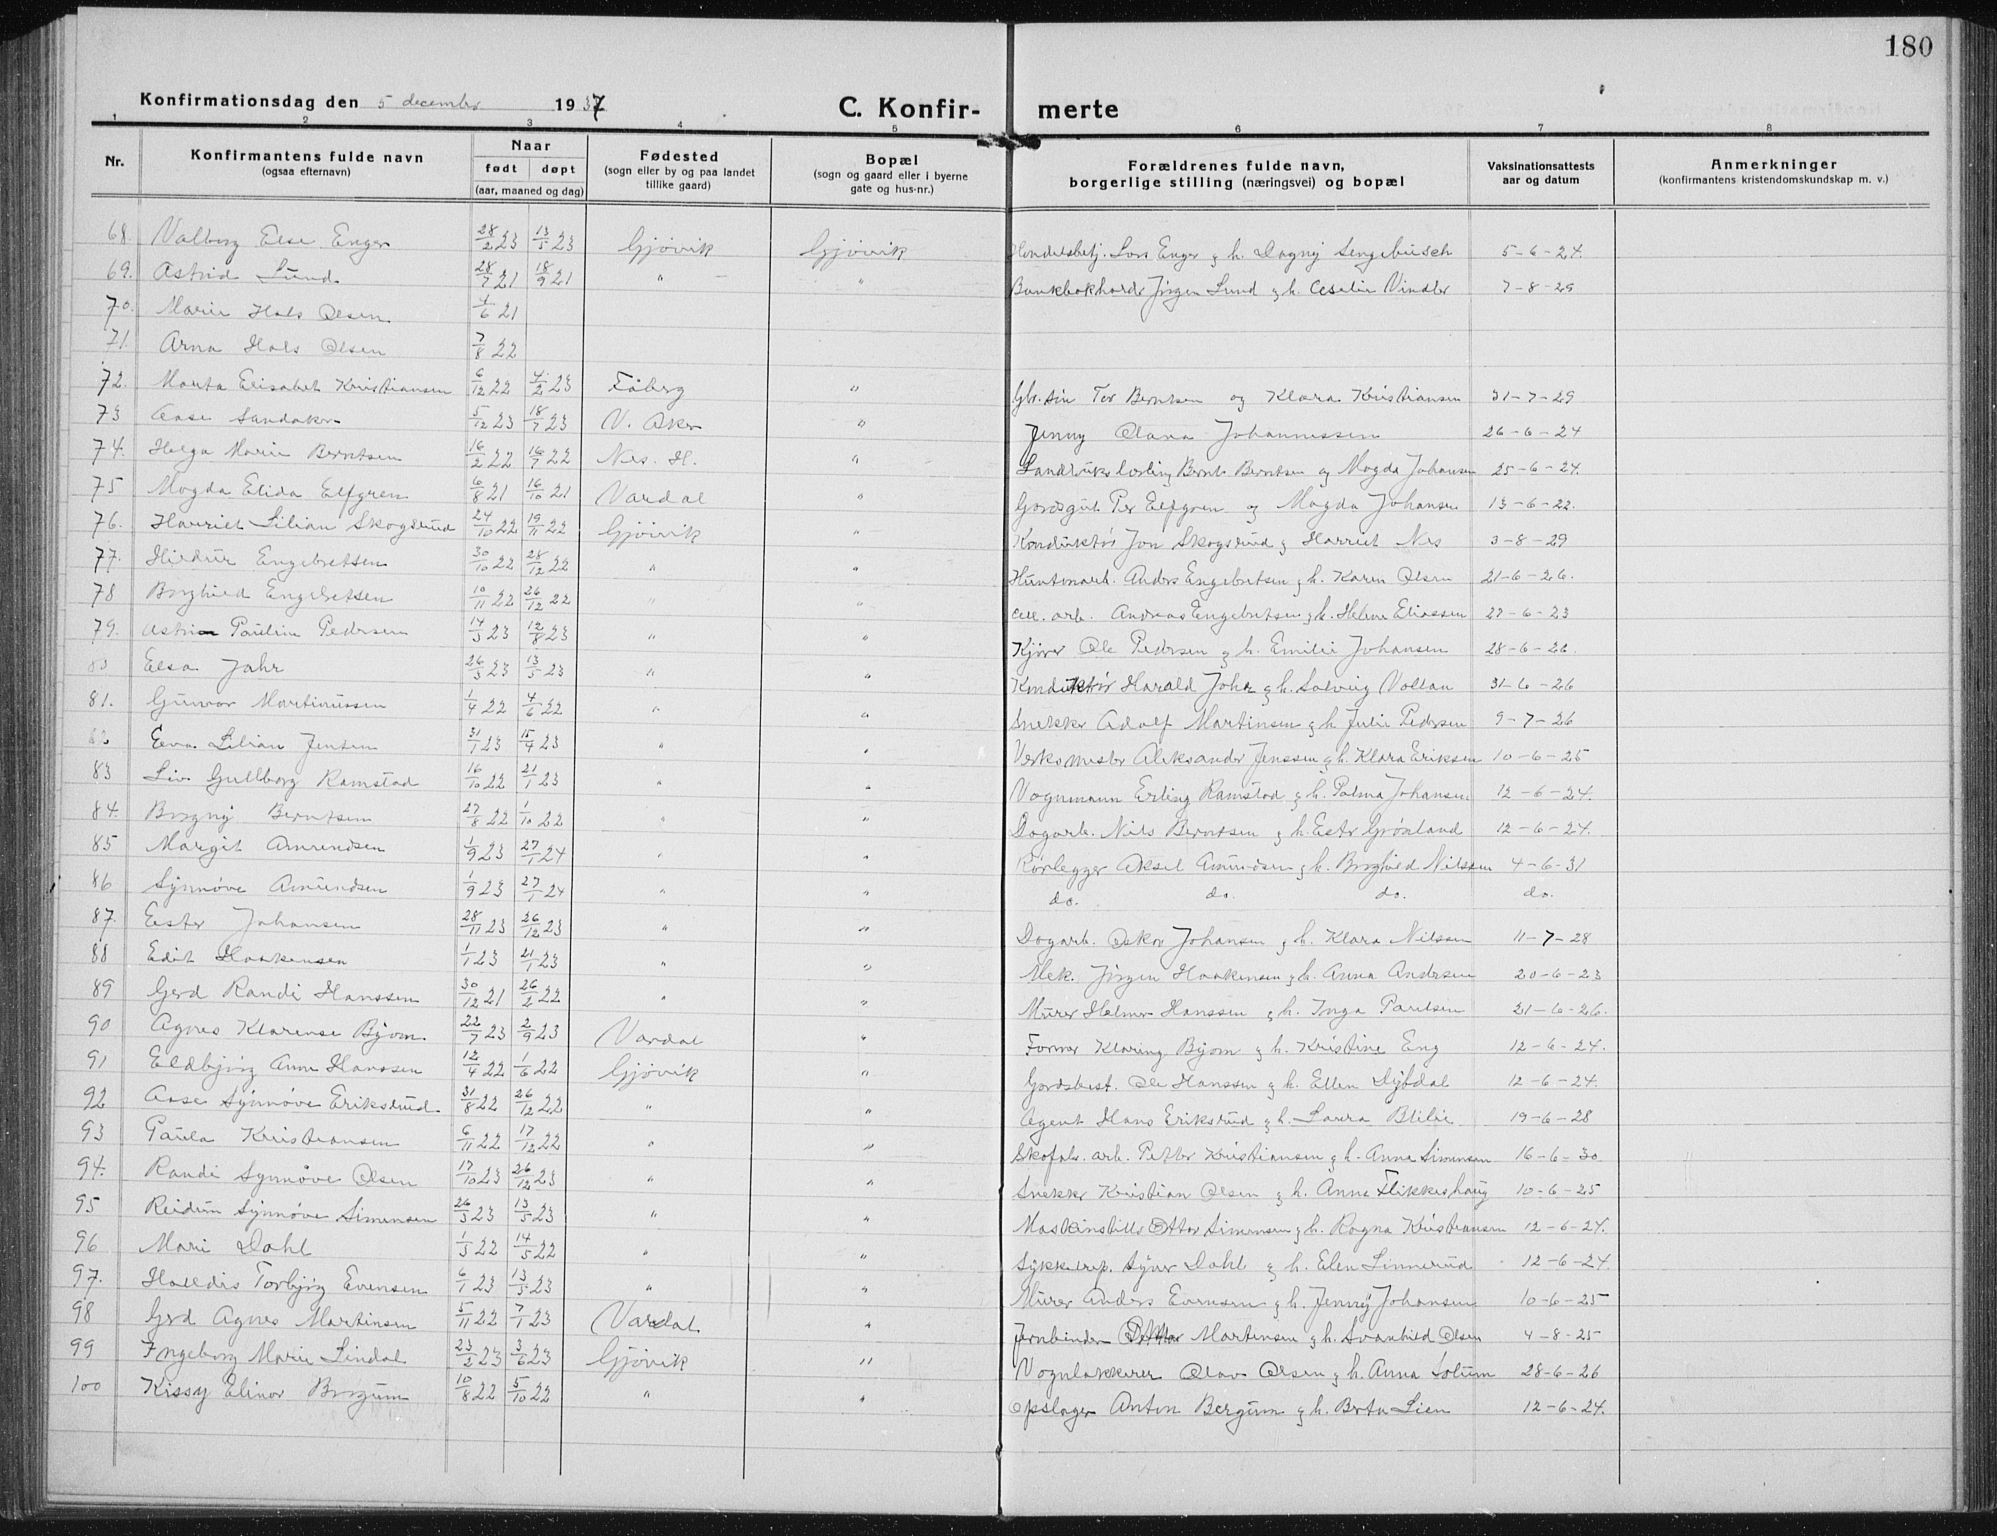 180
Konfirmationsdag den 5 december 1937
C. Konfir- merte
1 2 3 4 5 6 7 8
Nr. Konfirmantens fulde navn (ogsaa efternavn) Naar født døpt (aar, maaned og dag) Fødested (sogn eller by og paa landet tillike gaard) Bopæl (sogn og gaard eller i byerne gate og hus-nr.) Forældrenes fulde navn, borgerlige stilling (næringsvei) og bopæl Vaksinationsattests aar og datum Anmerkninger (konfirmantens kristendomskundskap m. v.)
68 Valborg Else Enger 28/2 23 13/5 23 Gjøvik Gjøvik Handelsbetj. Lars Enger g h. Dagny Sengebusch 5-6-24.
69. Astrid Lund 28/7 21 18/9 21 " " Bankbokholder Jørgen Lund g h. Cecelie 7-8-29
70. Marie Hals Olsen 4/6 21
71. Arna Hals Olsen 7/8 22
72. Marta Elisabet Kristiansen 6/12 22 4/2 23 Faaberg " Tor Berntsen og Klara Kristiansen 31-7-29
73 Aase Sandaker 5/12 23 18/7 23 V. Aker " Jenny Olana Johannessen 26-6-24
74. Helga Marie Berntsen 16/2 22 16/7 22 Nes. H. " Bernt Berntsen og Magda Johansen 25-6-24.
75 Magda Elida Elfgren 6/8 21 16/10 21 Vardal " Gardsgut Per Elfgren og Magda Johansen 13-6-22.
76. Harriet Lilian Skogsrud 24/10 22 19/11 22 Gjøvik " Konduktør Jon Skogsrud g Harriet Nes 3-8-29
77. Hildur Engebretsen 30/10 22 28/12 22 " " Huntonarb. Anders Engebretsen g h. Karen Olsen 21-6-26.
78 Borghild Engebretsen 10/11 22 26/12 22 " " Cell. arb. Andreas Engebretsen g h. Helene Eliassen 27-6-23
79. Astri Pauline Pedersen 14/3 23 12/8 23 " " Kjører Ole Pedersen g h. Emilie Johansen 28-6-26.
80 Elsa Jahr 26/3 23 13/5 23 " " Konduktør Harald Jahr g h. Solveig Vollan 31-6-26
81. Gunvor Martinussen 1/4 22 4/6 22 " " Snekker Adolf Martinsen g h Julie Pedersen 9-7-26
82 Eva Lilian Jensen 31/1 23 15/4 23 " " Verksmester Aleksander Jenssen g h. Klara Eriksen 10-6-25
83 Liv Gullborg Ramstad 16/10 22 21/1 23 " " Vognmann Erling Ramstad g h. Palma Johansen 12-6-24.
84. Borgny Berntsen 27/8 22 1/10 22 " " Dagarb. Nils Berntsen g h. Ester Grønland 12-6-24.
85 Margit Amundsen 1/9 23 27/1 24 " " Rørlegger Aksel Amundsen g h. Borghild Nilssen 4-6-31
86 Synnøve Amundsen 1/9 23 27/1 24 " " do. do. do. do.
87. Ester Johansen 28/11 23 26/12 23 " " Dagarb. Oskar Johansen g h. Klara Nilssen 11-7-28
88 Edit Haakensen 1/1 23 21/1 23 " " Mek. Jørgen Haakensen g h. Anna Andersen 20-6-23
89 Gerd Randi Hanssen 30/12 21 26/2 22 " " Murer Helmer Hanssen g h. Inga Paulsen 21-6-26.
90 Agnes Klarense Bjørn 22/7 23 2/9 23 Vardal " Klaring Bjørn g h. Kristine Eng 12-6-24.
91 Eldbjørg Anne Hanssen 12/4 22 1/6 22 Gjøvik " Gardsbest. Ole Hanssen g h. Ellen Dybdal 12-6-24.
92 Aase Synnøve Eriksrud 31/8 22 26/12 22 " " Agent Hans Eriksrud g h. Laura Blilie 19-6-28
93 Paula Kristiansen 6/11 22 17/12 22 " " Skofab. arb. Petter Kristiansen g h. Anna Simensen 16-6-30
94. Randi Synnøve Olsen 17/10 23 26/12 23 " " Snekker Kristian Olsen g h. Anna Flikkeshaug 10-6-25
95 Reidun Synnøve Simensen 26/3 23 13/5 23 " " Maskinstiller Ottar Simensen g h. Ragna Kristiansen 12-6-24.
96 Mari Dahl 1/3 22 14/5 22 " " Sykkelrep. Syver Dahl g h. Elen Linnerud 12-6-24.
97. Halldis Torbjørg Evensen 6/1 23 13/5 23 " " Murer Anders Evensen g h. Jenny Johansen 10-6-25
98 Gerd Agnes Martinsen 5/11 22 7/1 23 Vardal " Jernbinder Petter Martinsen g h. Svanhild Olsen 4-8-25
99 Ingeborg Marie Lindal 23/2 23 3/6 23 Gjøvik " Vognlakkerer Olav Olsen g h. Anna Solum 28-6-26
100 Kissy Elinor Bergum 10/8 22 5/10 22 " " Opslager Anton Bergum g h. Berta Lien 12-6-24.